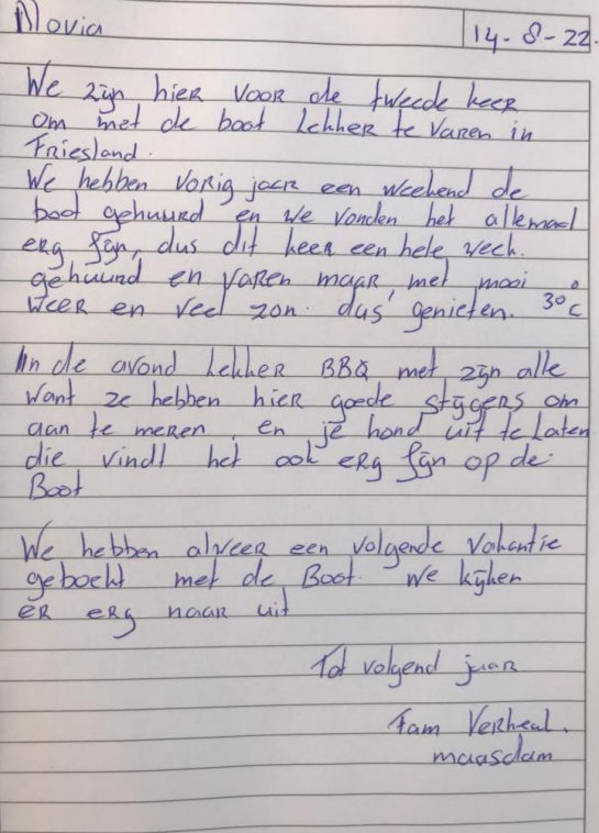 Movia 14-8-22.
We zijn hier voor de tweede keer
om met de boot lekker te varen in
Friesland.
We hebben vorig jaar een weekend de
boot gehuurd en we vonden het allemaal
erg fijn, dus dit keer een hele week.
gehuurd en varen maar, met mooi
weer en veel zon. dus genieten. 30°C
In de avond lekker BBQ met zijn alle
want ze hebben hier goede stijgers om
aan te meren, en je hond uit te laten
die vindt het ook erg fijn op de
Boot
We hebben alweer een volgende vakantie
geboekt met de Boot. We kijken
er erg naar uit
Tot volgend jaar
Fam
maasdam